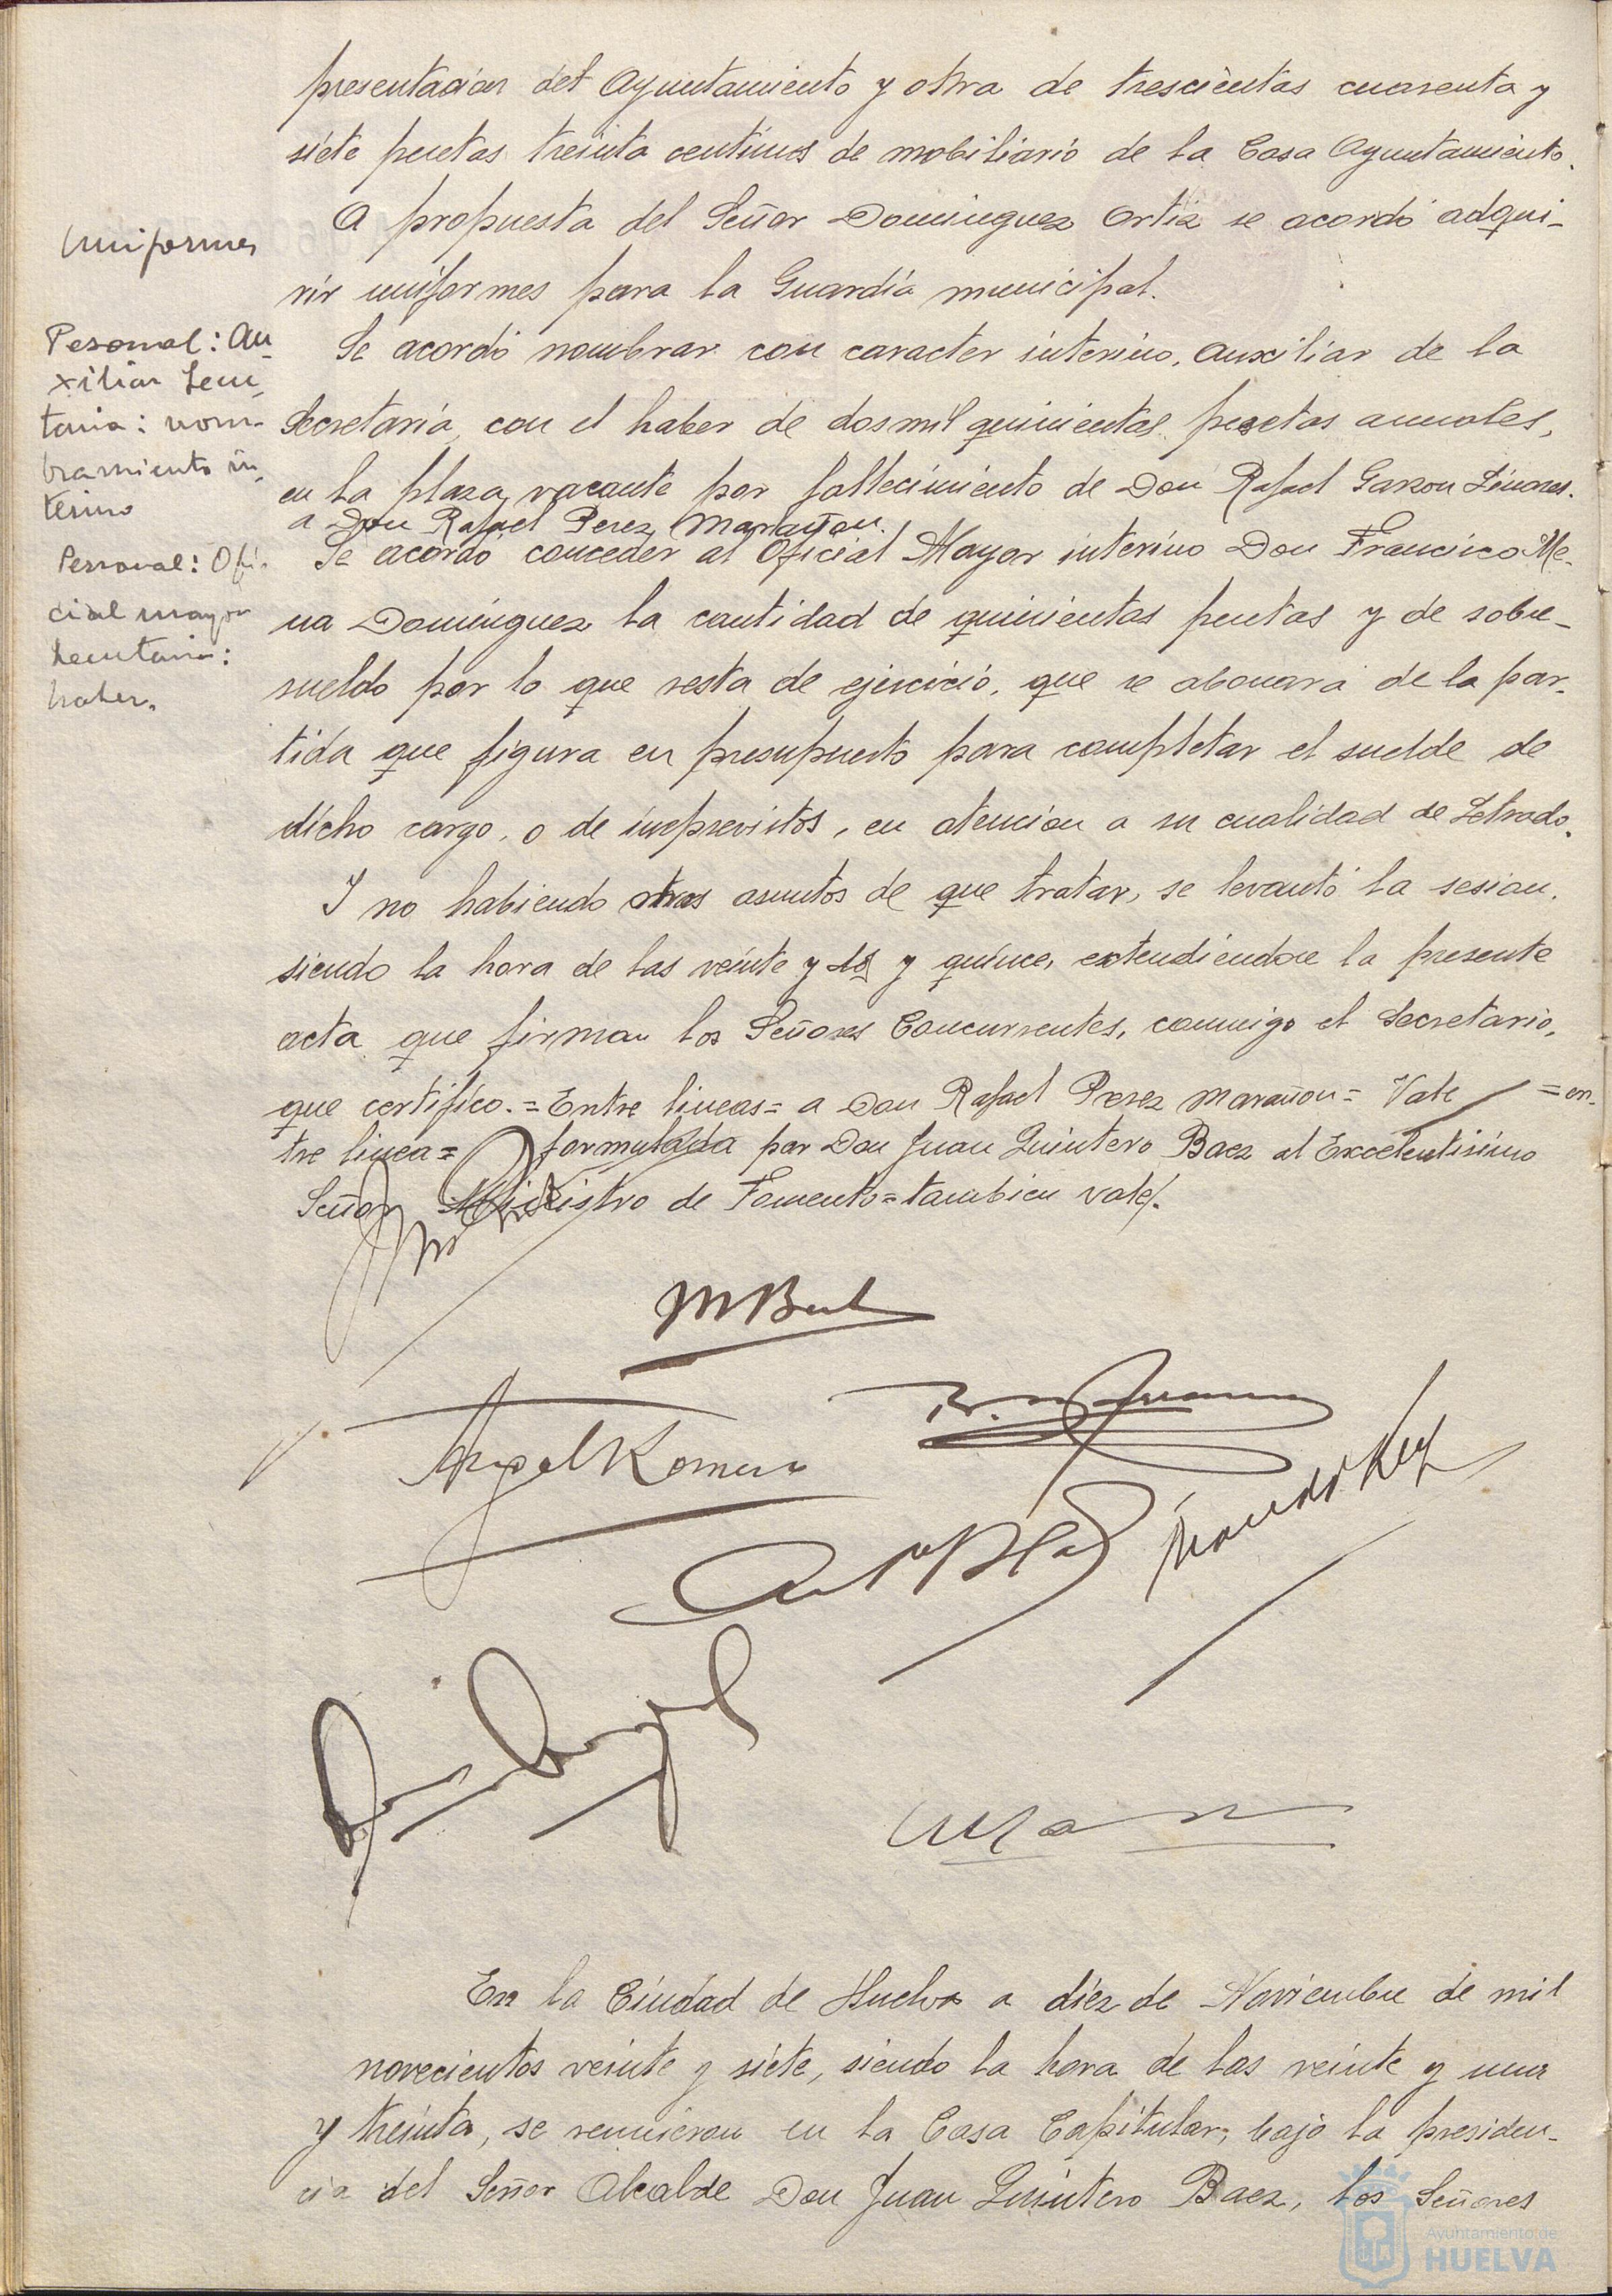 presentacion del Ayuntamiento y otra de trescientas cuarenta y
siete pesetas treinta centimos de mobiliario de la Casa Ayuntamiento.
Uniformes
A propuesta del Señor Dominguez Ortiz se acordó adqui-
rir uniformes para la Guardia municipal.
Pesonal: Au-
xiliar Secre-
taria: nom-
bramiento in-
terino
Se acordó nombrar con caracter interino, auxiliar de la
Secretaria, con el haber de dos mil quinientas pesetas anuales,
en la plaza, vacante por fallecimiento de Don Rafael Garzon Linares.
a Don Rafael Perez Marañon.
Personal: Ofi-
cial mayor
Secretaria:
haber.
Se acordó conceder al Oficial Mayor interino Don Francisco Me-
na Dominguez la cantidad de quinientas pesetas y de sobre-
sueldo por lo que resta de ejercicio, que se abonará de la par-
tida que figura en presupuesto para completar el suelde de
dicho cargo, o de imprevistos, en atencion a su cualidad de Letrado.
Y no habiendo otros asuntos de que tratar, se levantó la sesion,
siendo la hora de las veinte y dos y quince, extendiendose la presente
acta que firman los Señores Concurrentes, conmigo el Secretario,
que certifico.= Entre lineas= a Don Rafael Perez Marañon= Vale = en-
tre linea= formulada por Don Juan Quintero Baez al Excelentisimo
Señor Ministro de Fomento=tambien vale/.
Angel Romero
En la Ciudad de Huelva a diez de Noviembre de mil
novecientos veinte y siete, siendo la hora de las veinte y una
y treinta, se reunieron en la Casa Capitular, bajo la presiden-
cia del Señor Alcalde Don Juan Quintero Baez, los Señores
Ayuntamiento de
HUELVA